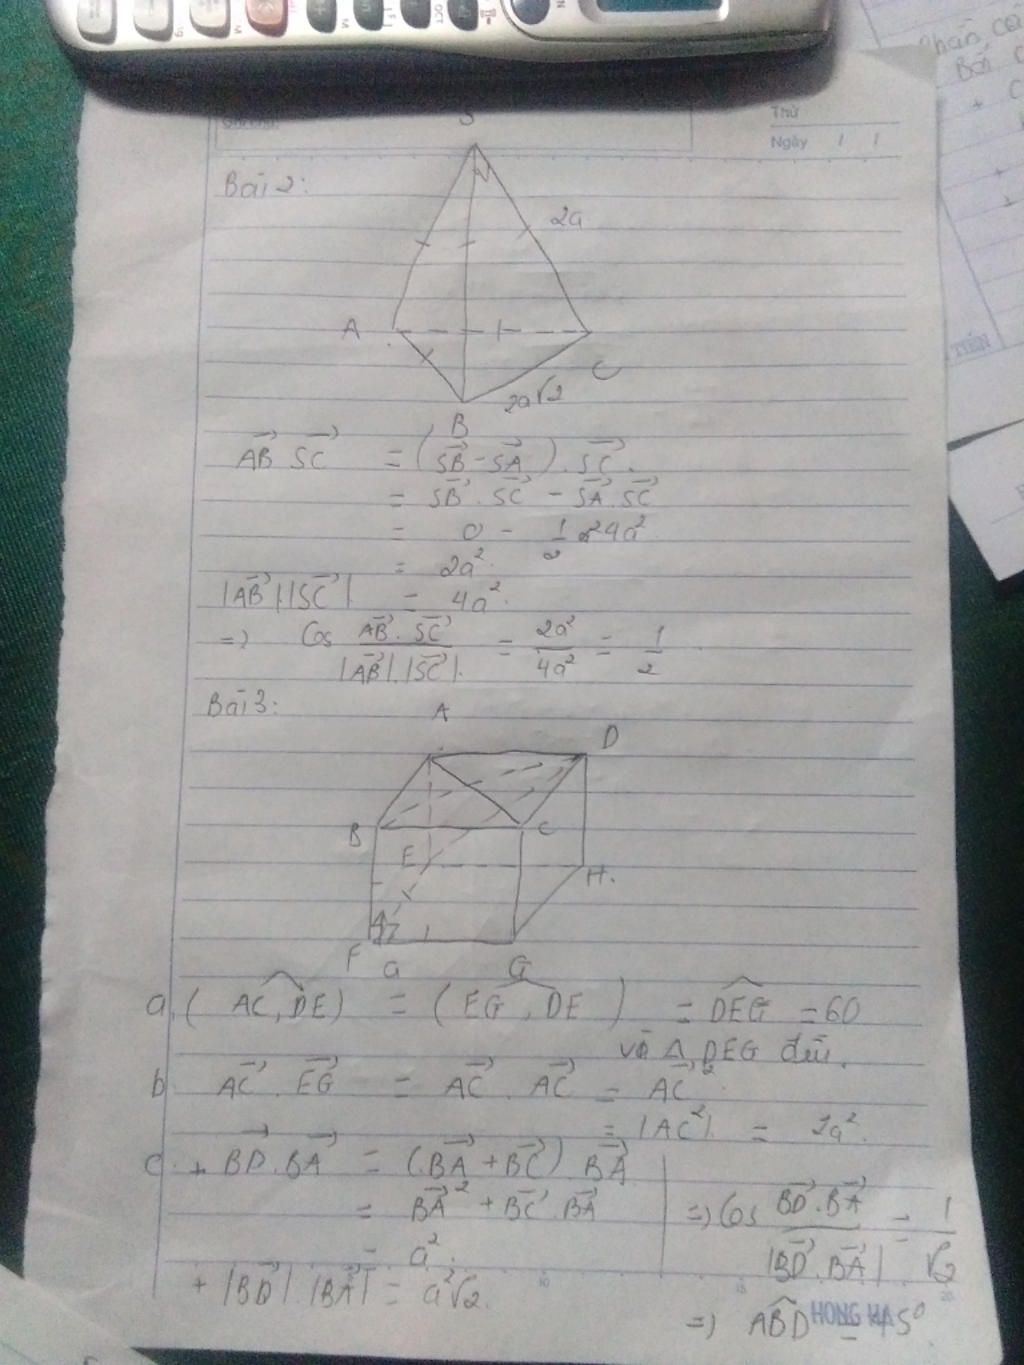 Thứ
Ngày / /
Bài 2:
S
2a
A
C
2a√2
B
AB SC = (SB - SA).SC.
= SB . SC - SA . SC
= 0 -
= 2a².
|AB|.|SC| = 4a².
=> Cos AB . SC / |AB|.|SC|. = 2a²/4a² = 1/2
Bài 3:
A
D
B
C
E
H.
F a G
a. (AC, DE) = (EG, DE) = DEG = 60
và Δ DEG đều.
b AC . EG = AC . AC = AC²
= |AC²|. = 2a².
c. + BD.BA = (BA + BC).BA
= BA² + BC . BA
= a².
+ |BD|.|BA| = a²√2.
=> Cos BD.BA / |BD.BA| = 1/√2
=> ABD = 45°
HONG HA
TIẾN